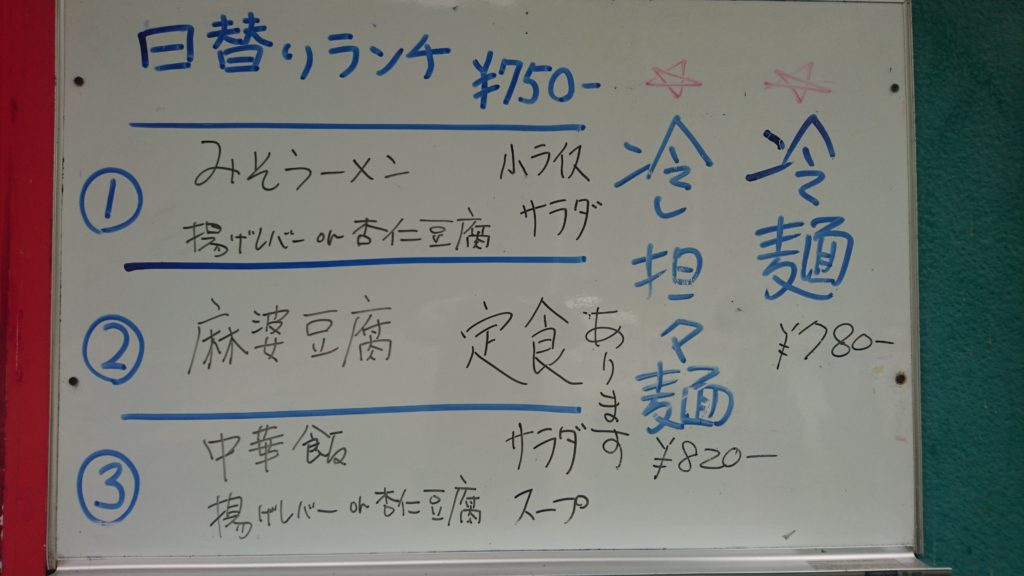 日替りランチ ¥750-
① みそラーメン 小ライス
揚げレバー or 杏仁豆腐 サラダ
② 麻婆豆腐 定食
③ 中華飯 サラダ
揚げレバー or 杏仁豆腐 スープ
あります
☆ 冷麺
¥780-
☆ 冷し担々麺
¥820-